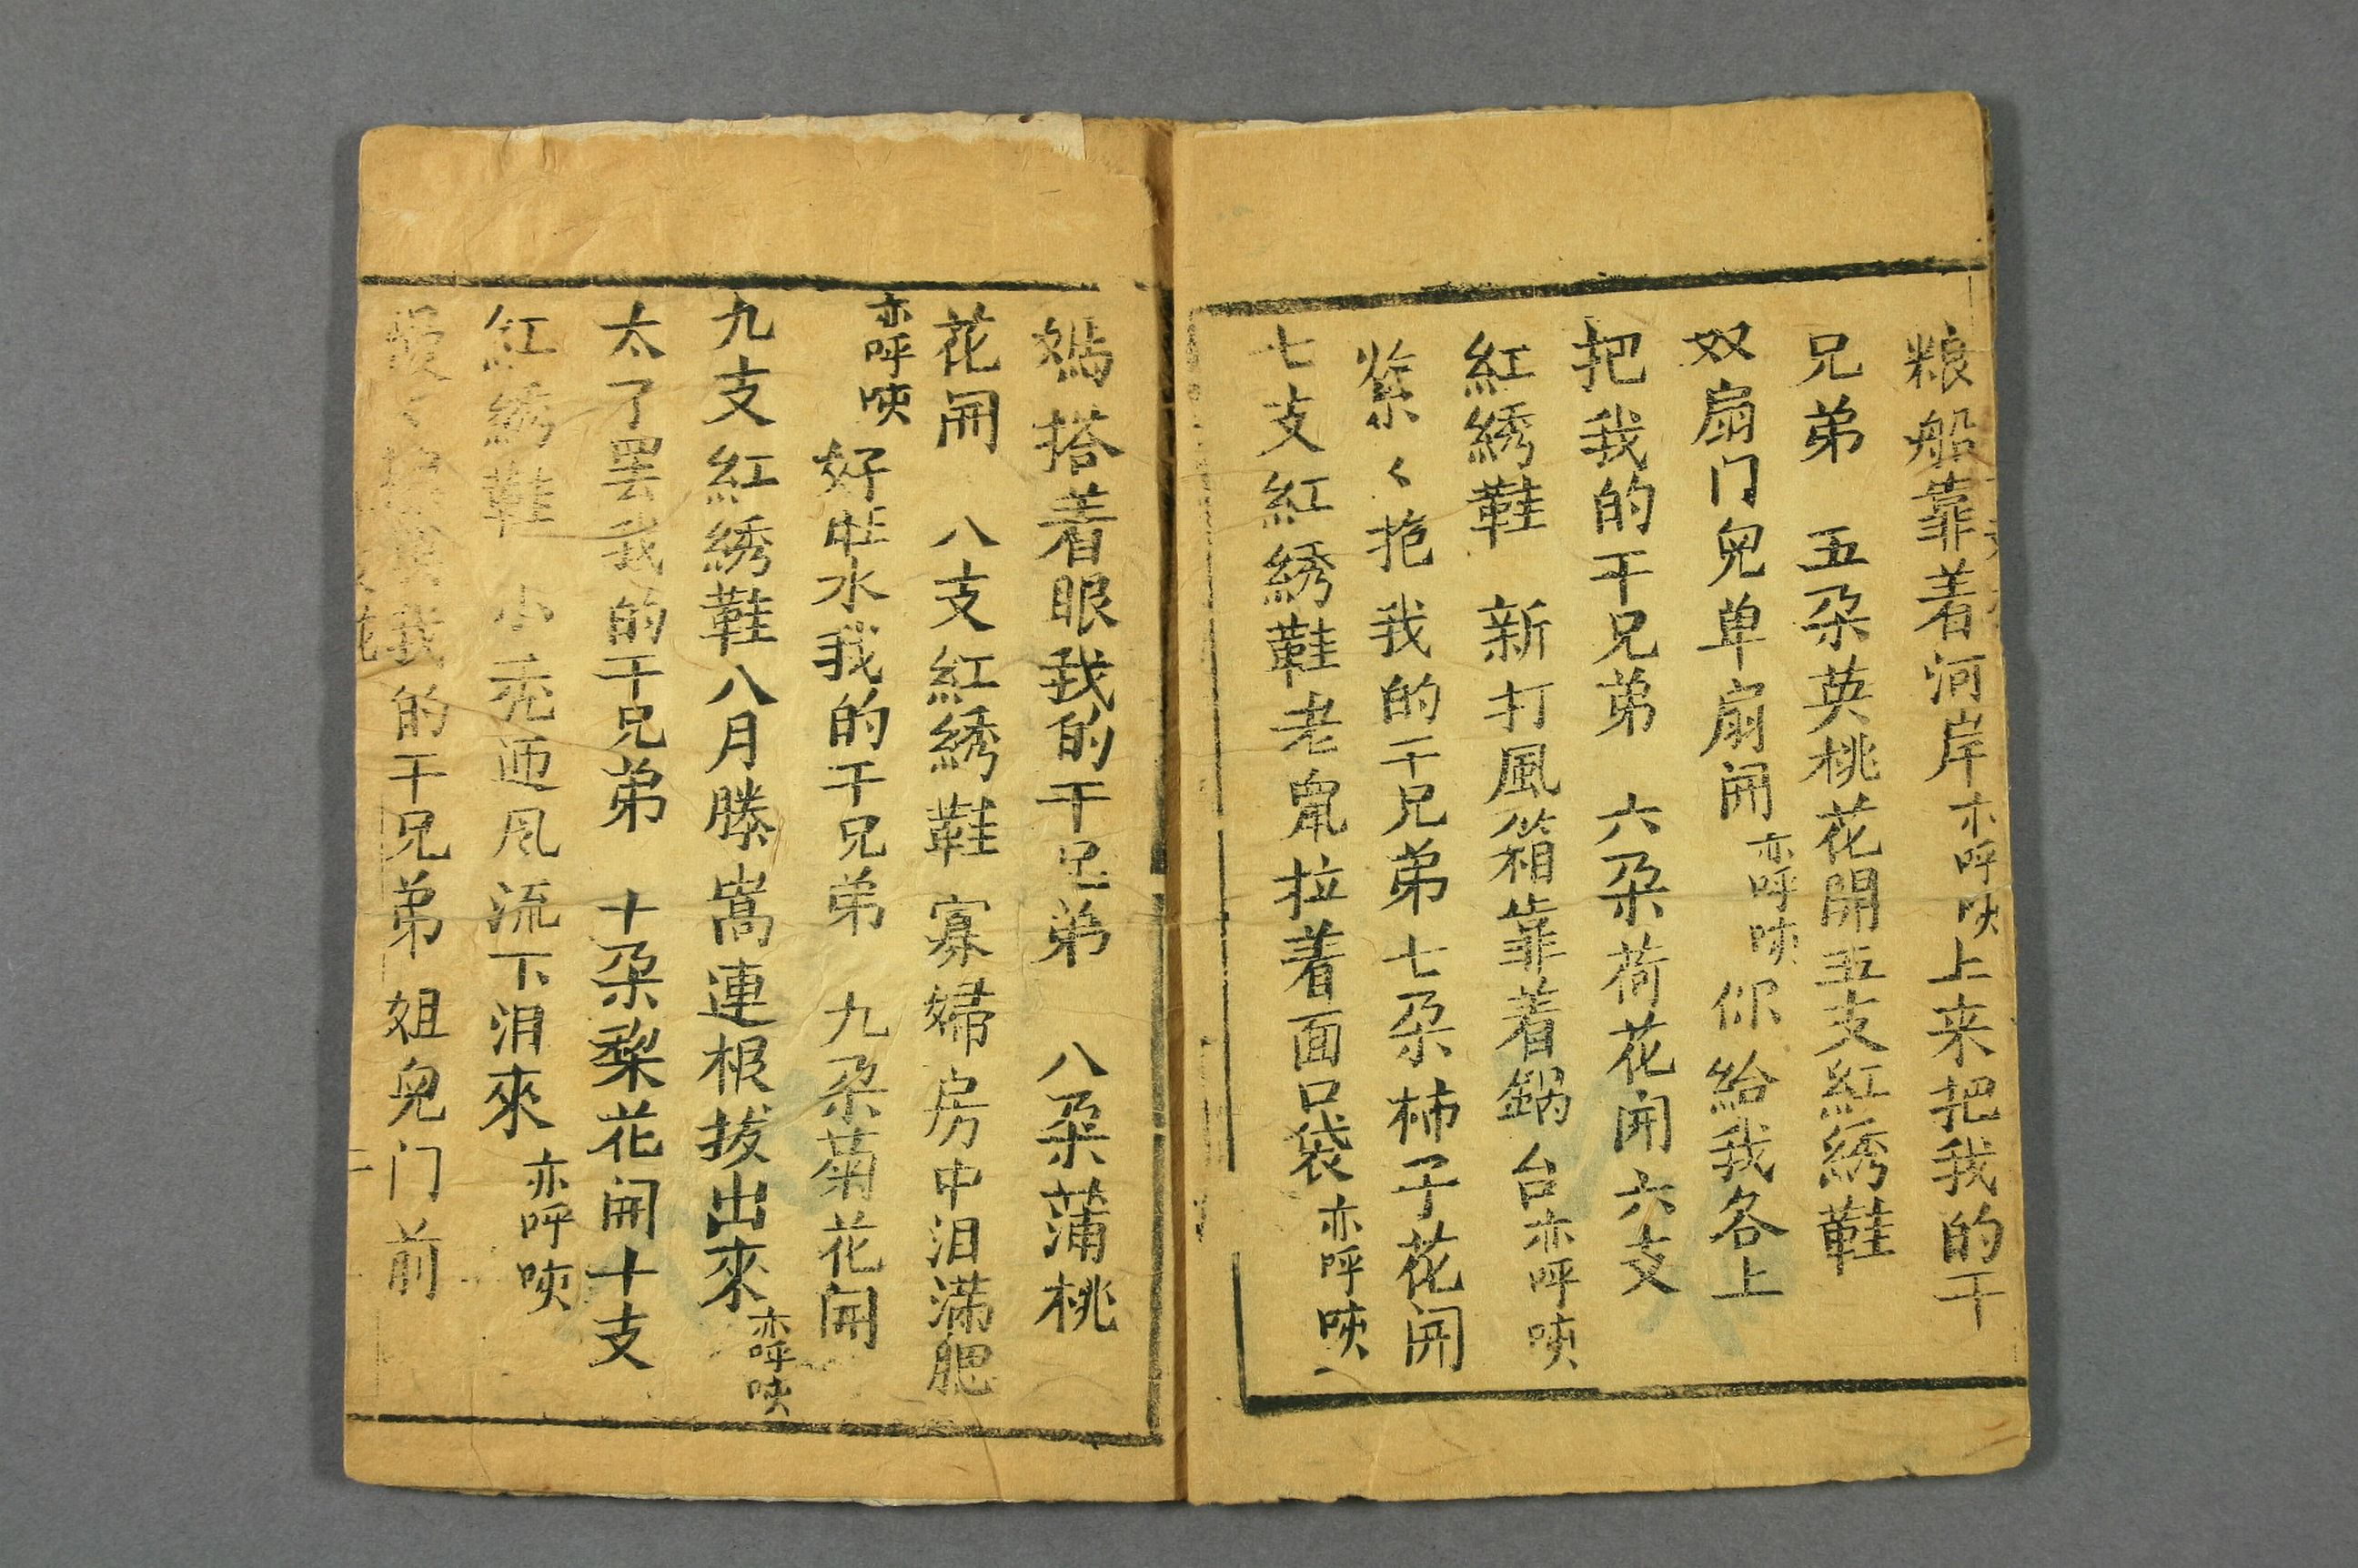 粮船靠着河岸亦呼咦上来把我的干
兄弟　五朶英桃花開五支紅綉鞋
双扇门兒单扇開亦呼咦你给我各上
把我的干兄弟　六朶荷花開六支
紅綉鞋　新打風箱靠着鍋台亦呼咦
紧〻抱我的干兄弟七朶柿子花開
七支紅綉鞋老鼠拉着面口袋亦呼咦
媽搭着眼我的干兄弟　八朶蒲桃
花開　八支紅綉鞋寡婦房中泪满腮
亦呼咦好壮水我的干兄弟　九朶菊花開
九支紅綉鞋八月滕蒿連根拔出來亦呼咦
太了罢我的干兄弟　十朶梨花開十支
紅綉鞋　小秃迊风流下泪來亦呼咦
我的干兄弟　姐兒门前